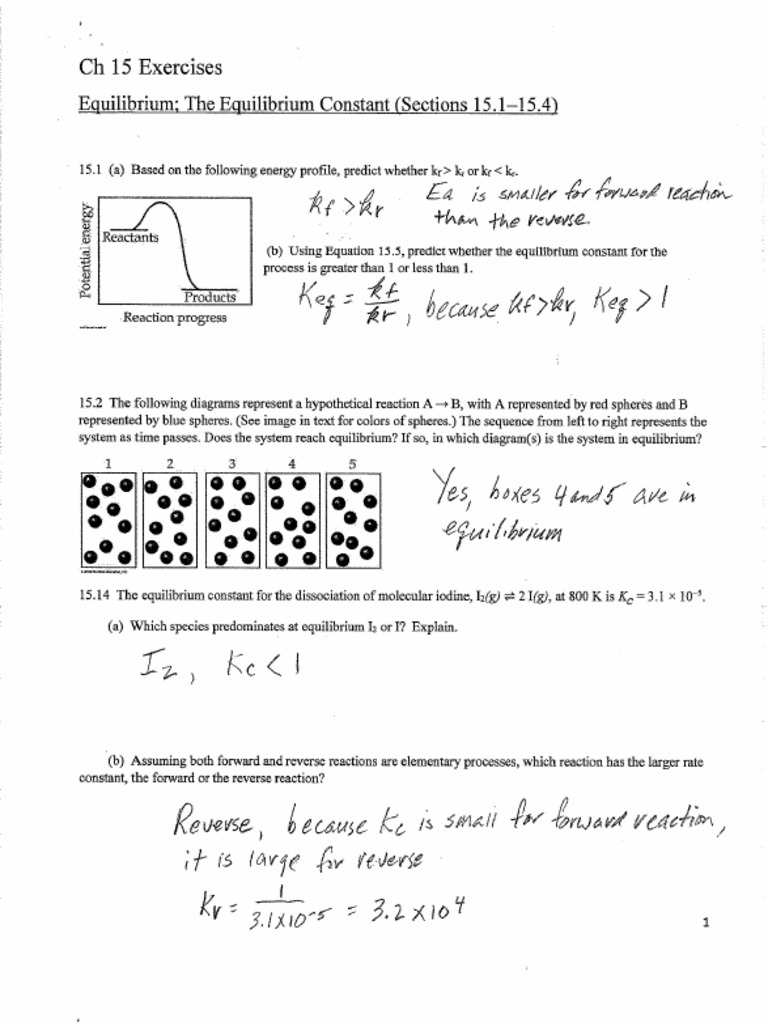 Ch 15 Exercises
Equilibrium; The Equilibrium Constant (Sections 15.1–15.4)
15.1 (a) Based on the following energy profile, predict whether kf > kr or kf < kr.
kf > kr
Ea is smaller for forward reaction
than the reverse.
Potential energy
Reactants
Products
Reaction progress
(b) Using Equation 15.5, predict whether the equilibrium constant for the
process is greater than 1 or less than 1.
Keq = kf/kr, because kf > kr, Keq > 1
15.2 The following diagrams represent a hypothetical reaction A → B, with A represented by red spheres and B
represented by blue spheres. (See image in text for colors of spheres.) The sequence from left to right represents the
system as time passes. Does the system reach equilibrium? If so, in which diagram(s) is the system in equilibrium?
1 2 3 4 5
Yes, boxes 4 and 5 are in
equilibrium
15.14 The equilibrium constant for the dissociation of molecular iodine, I₂(g) ⇌ 2 I(g), at 800 K is Kc = 3.1 × 10⁻⁵.
(a) Which species predominates at equilibrium I₂ or I? Explain.
I₂, Kc < 1
(b) Assuming both forward and reverse reactions are elementary processes, which reaction has the larger rate
constant, the forward or the reverse reaction?
Reverse, because Kc is small for forward reaction,
it is large for reverse
Kr = 1/3.1×10⁻⁵ = 3.2 × 10⁴
1